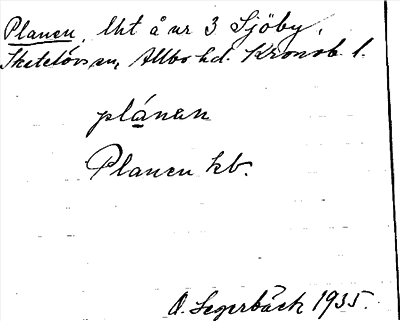 Planen, lht å nr 3 Sjöby,
Skatelövs sn, Allbo hd. Kronob. l.
plánan
Planen kb.
O. Segerbäck 1935.